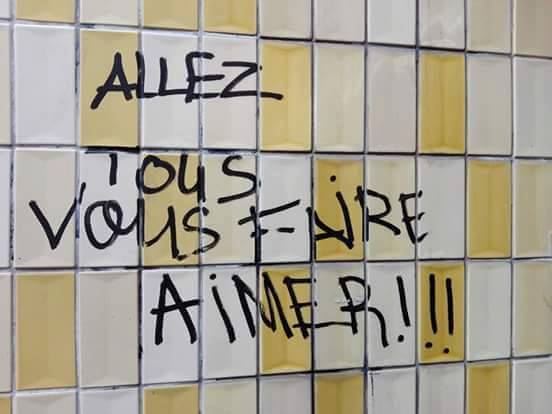 ALLEZ
TOUS
VOUS FAiRE
AiMER!!!